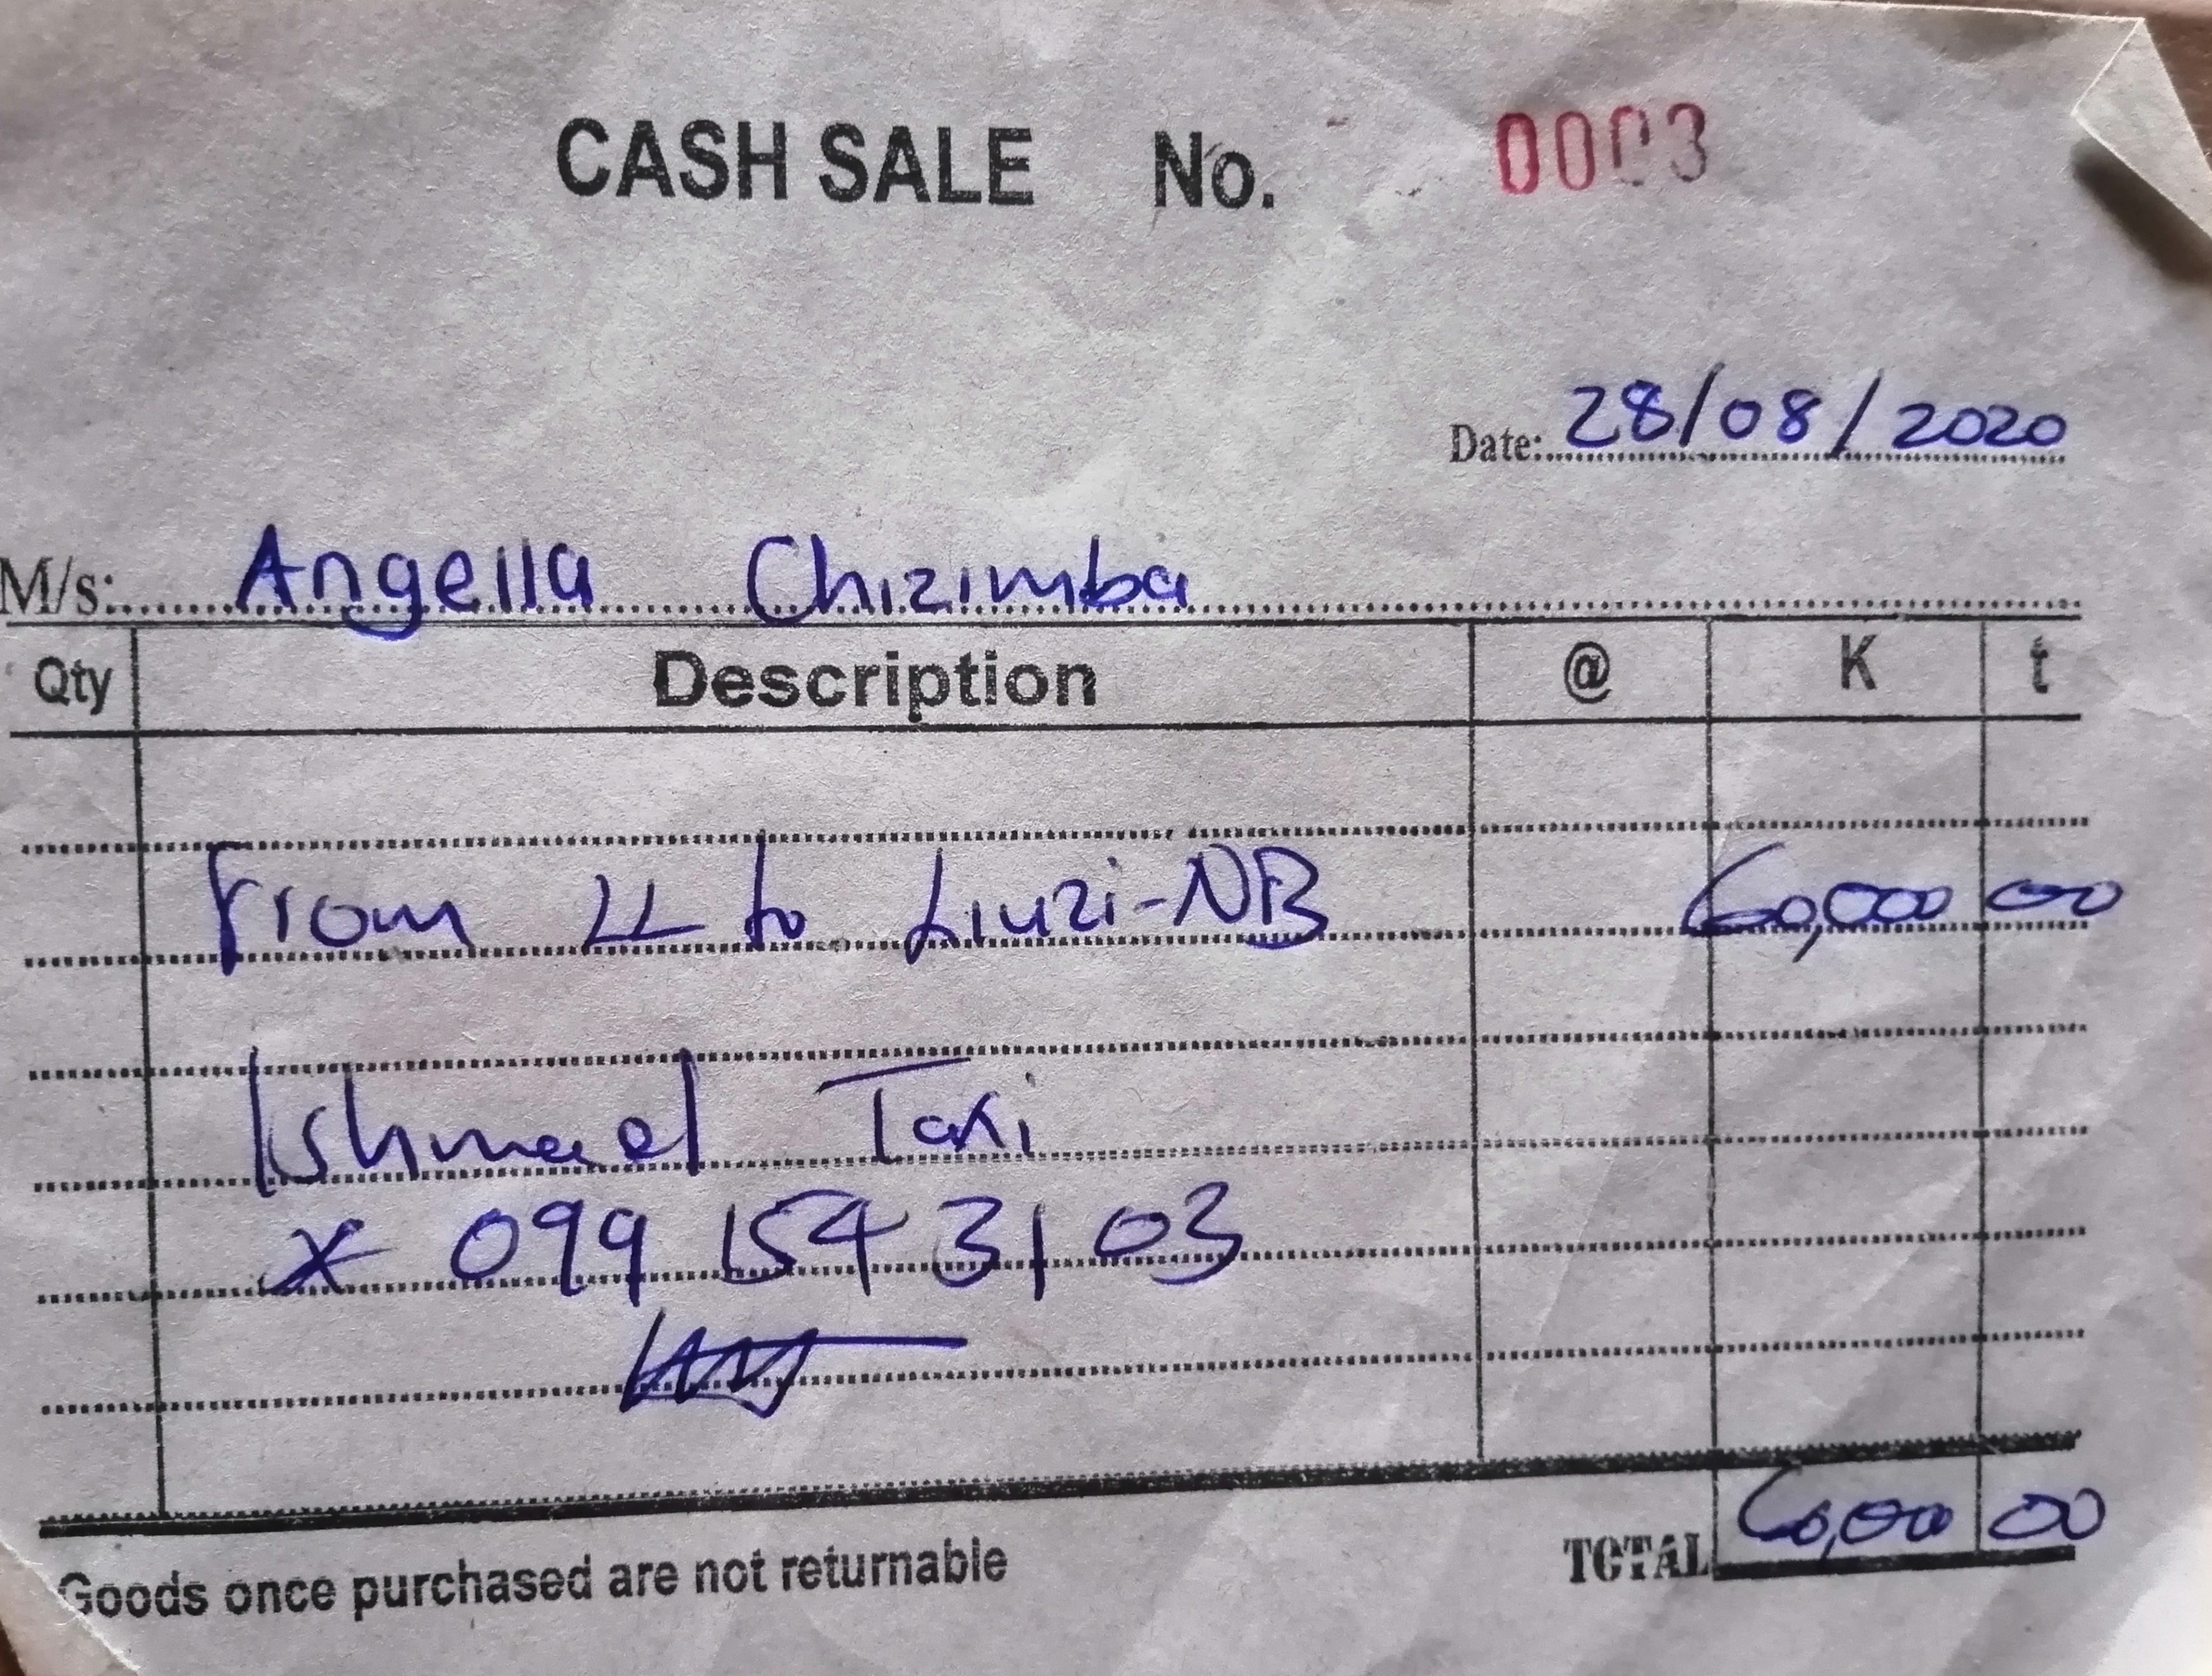 CASH SALE No. 0003
Date: 28/08/2020
M/s: Angella Chizimba
Qty Description @ K t
From LL to Liuzi-NB 60,000 00
Ishmael Taxi
* 099 154 31 03
TOTAL 60,000 00
Goods once purchased are not returnable